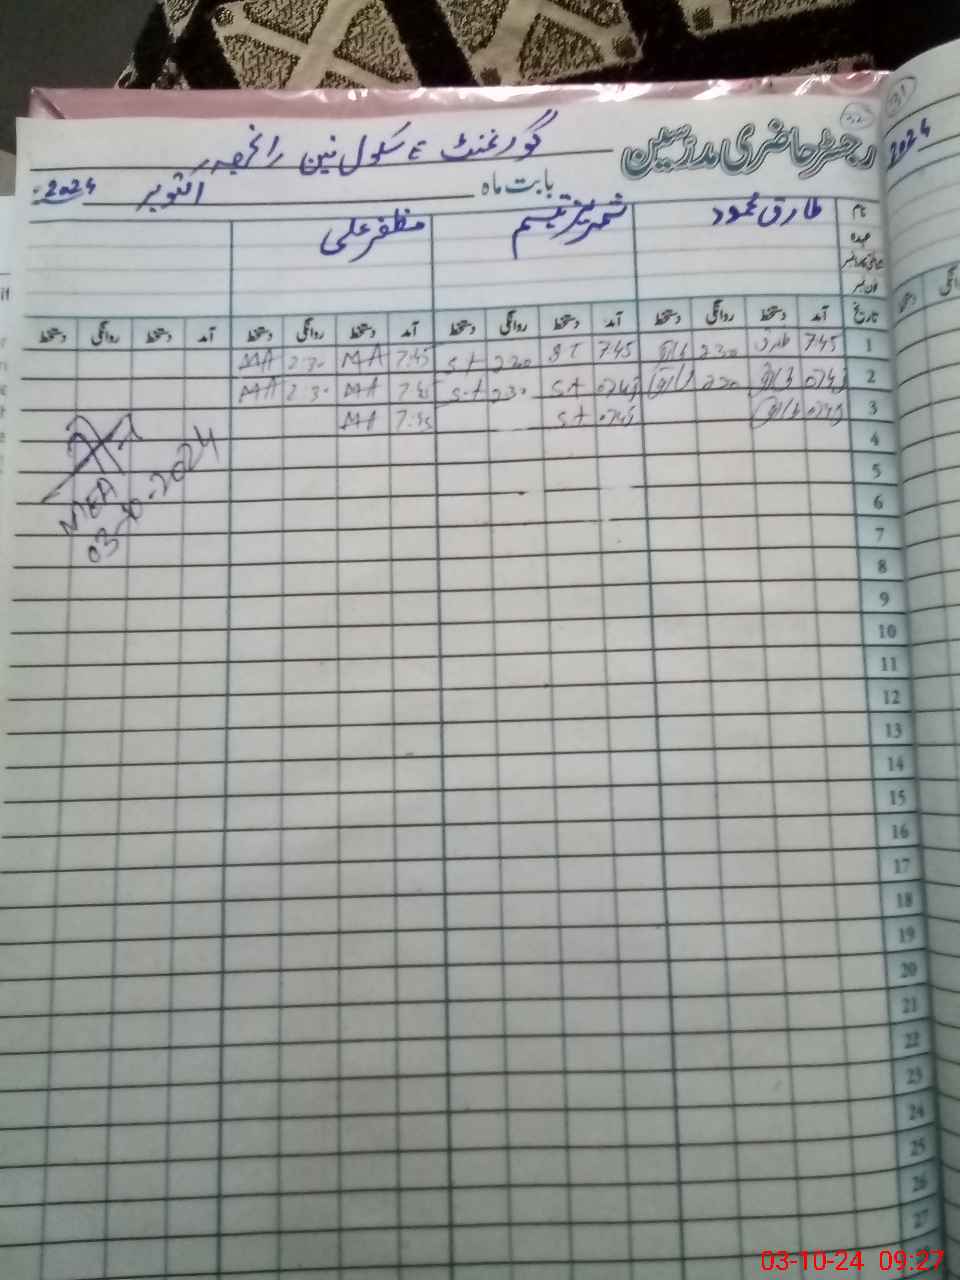 32
رجسٹر حاضری مدرسین
گورنمنٹ ہائی سکول نین رانجھہ
بابت ماہ اکتوبر 2024
نام طارق محمود شمریز تبسم مظفر علی
عہدہ
فون نمبر
تاریخ آمد دستخط روانگی دستخط آمد دستخط روانگی دستخط آمد دستخط روانگی دستخط آمد دستخط روانگی دستخط
1 7:45 طارق 2:30 طارق 7:45 S T 2:30 S T 7:45 MA 2:30 MA
2 0745 طارق 2:30 طارق 0745 S T 2:30 S T 7:45 MA 2:30 MA
3 0745 طارق 0745 S T 7:45 MA
4
MEA
03-10-2024
5
6
7
8
9
10
11
12
13
14
15
16
17
18
19
20
21
22
23
24
25
26
27
31
2024
03-10-24 09:27